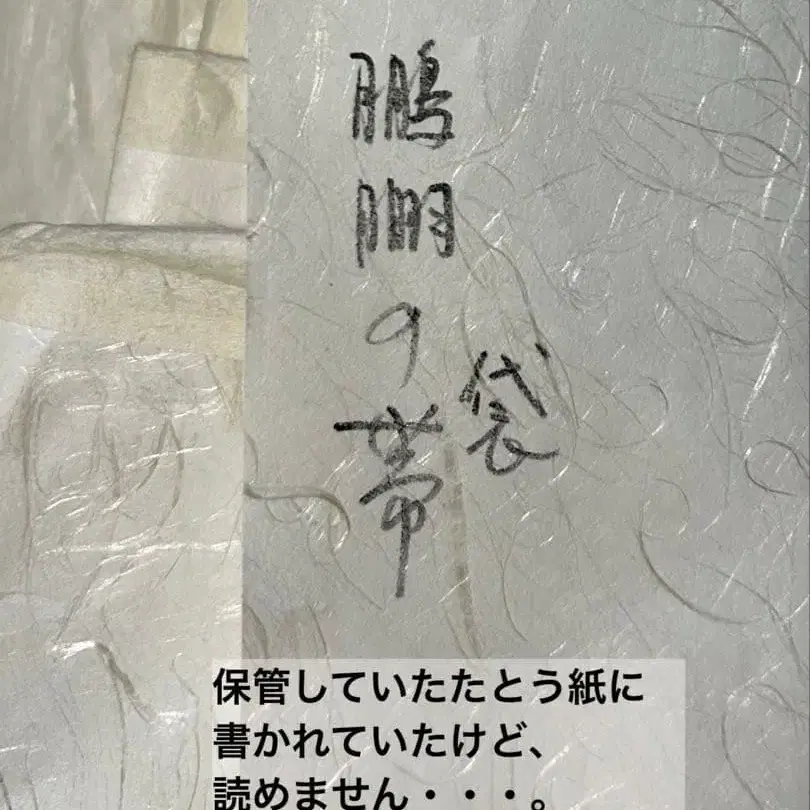 鵬 の帯
袋
保管していたたとう紙に
書かれていたけど、
読めません・・・。